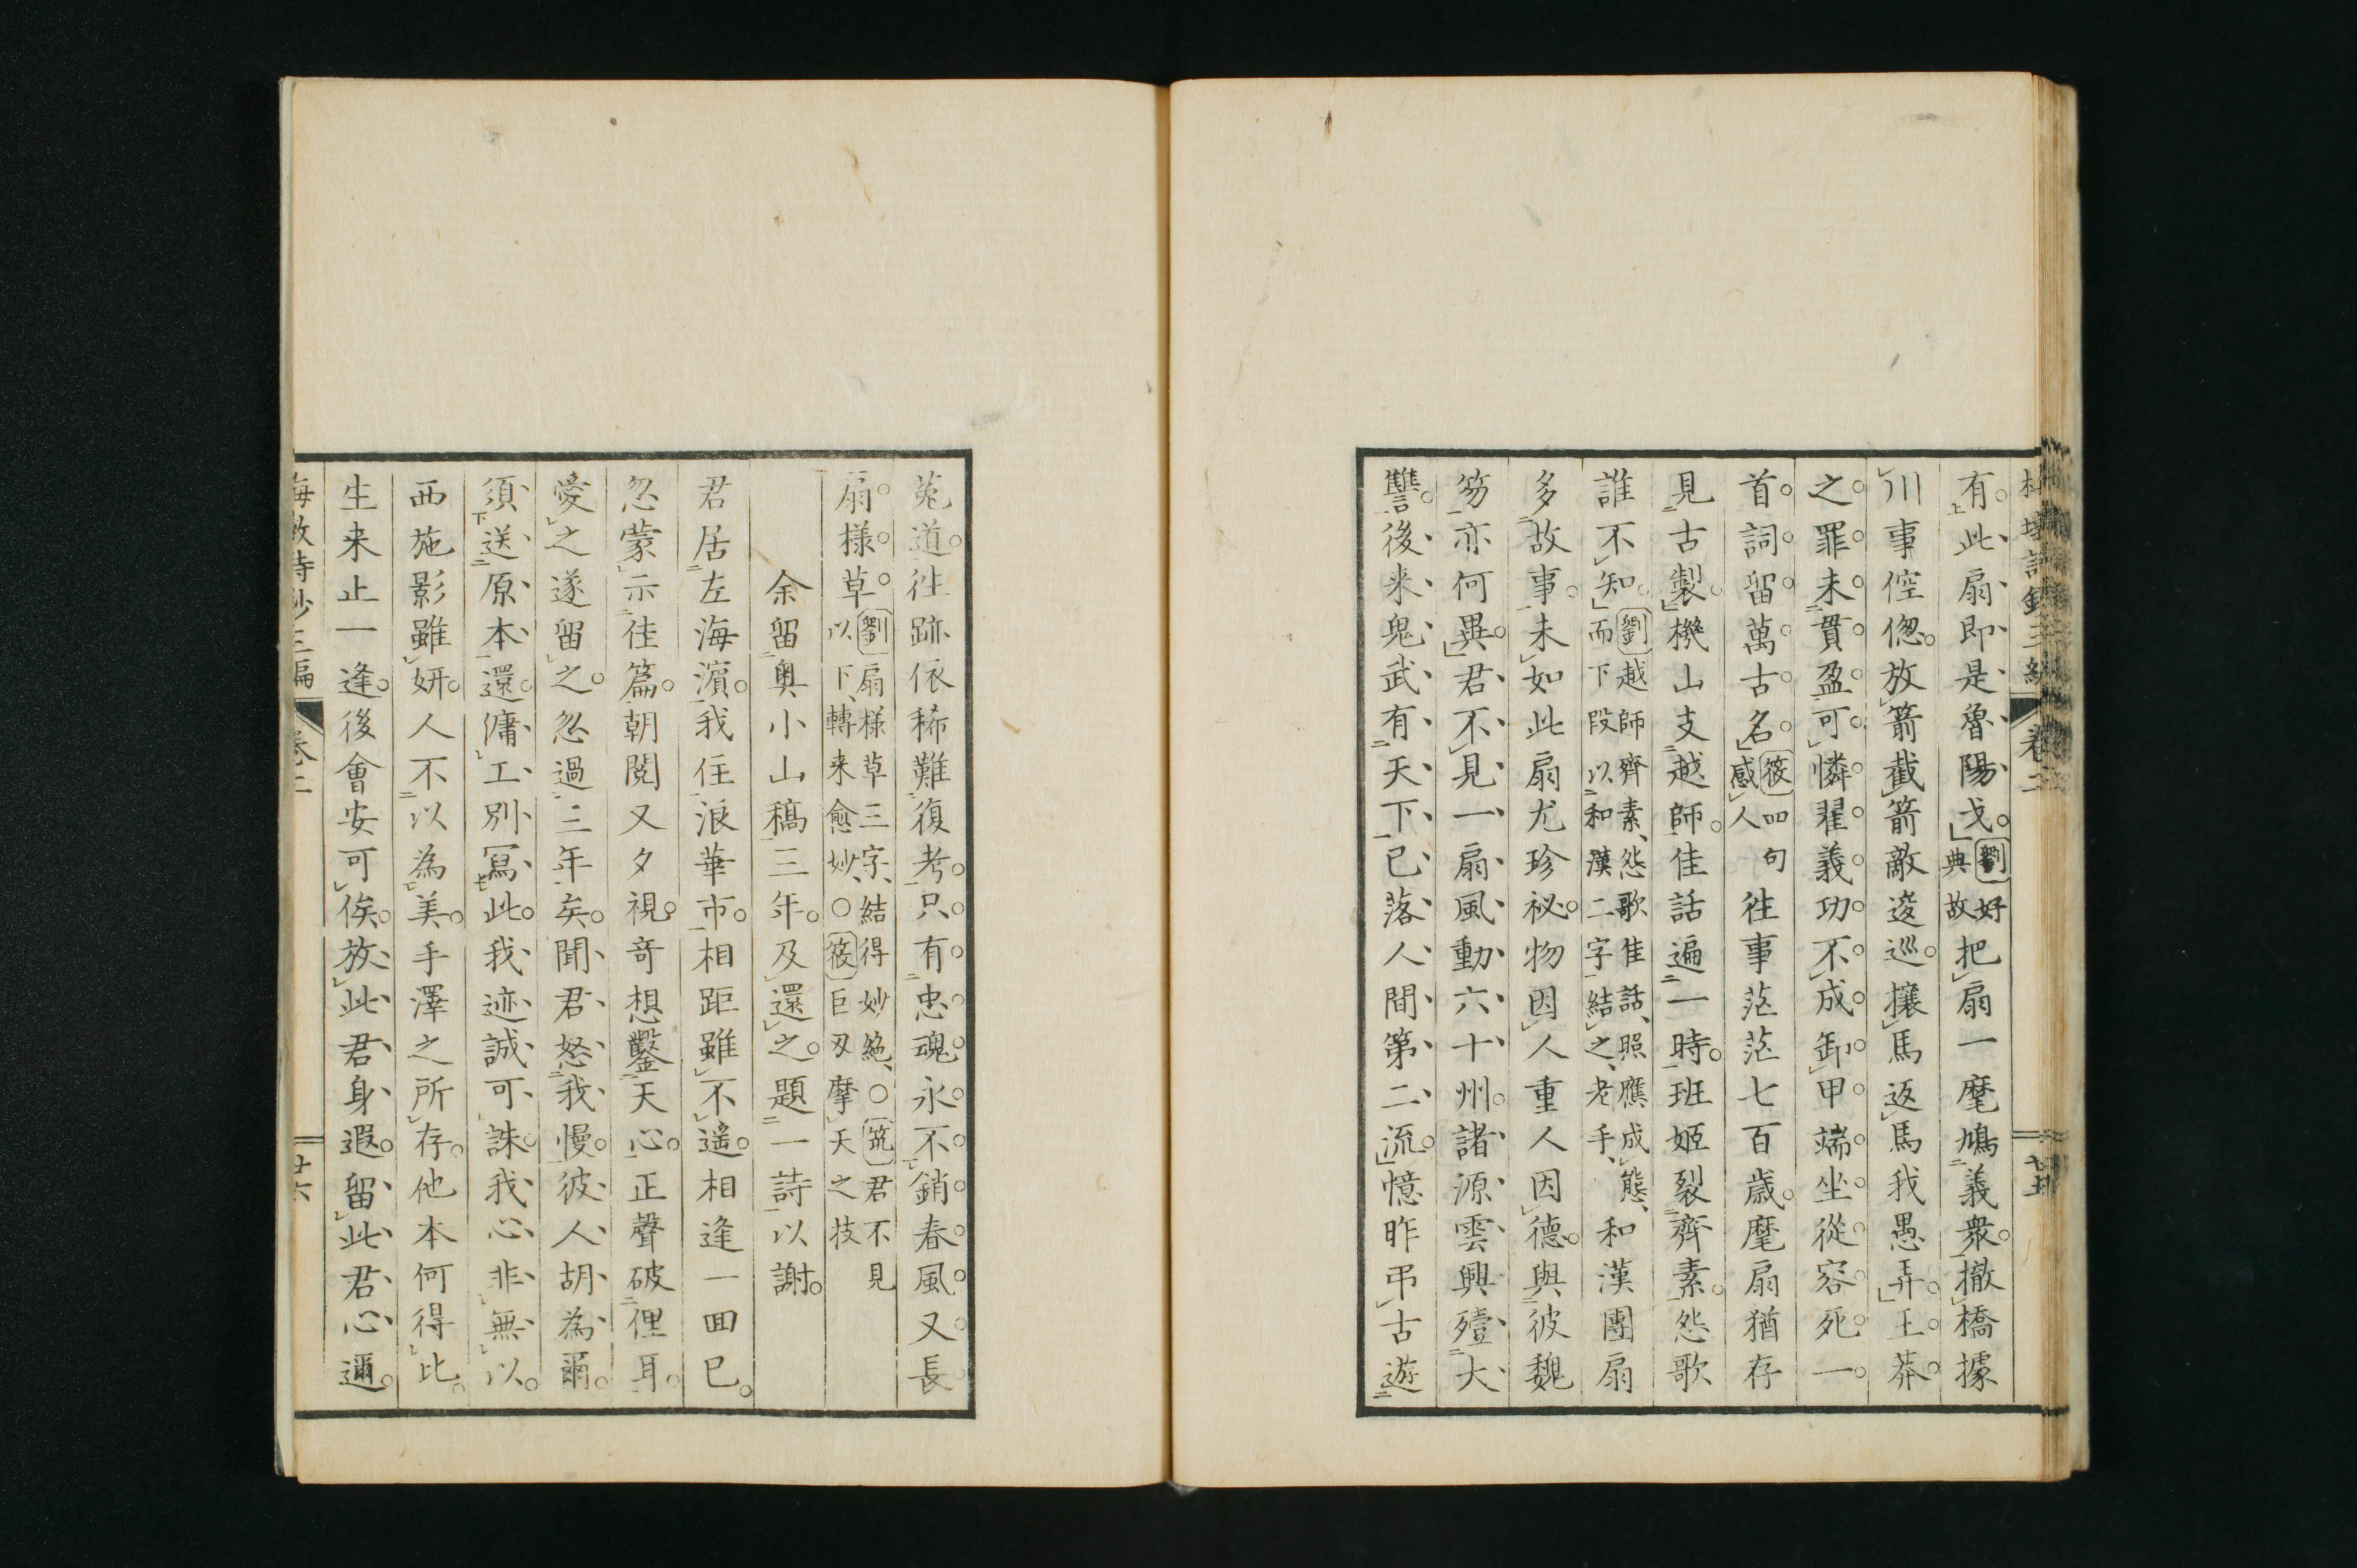 有此扇即是魯陽戈劉好典故把扇一麾鳩義衆撤橋據
川事倥偬放箭截箭敵逡巡攘馬返馬我愚弄王莽
之罪未貫盈可憐翟義功不成卸甲端坐從容死一
首詞留萬古名筱四句感人往事茫茫七百歲麾扇猶存
見古製機山支越師佳話遍一時班姬裂齊素怨歌
誰不知劉越師齊素怨歌佳話照應成態而下段以和漢二字結之老手和漢團扇
多故事未如此扇尤珍祕物因人重人因德與彼魏
笏亦何異君不見一扇風動六十州諸源雲興殪大
讐後来鬼武有天下已落人間第二流憶昨弔古遊
菟道往跡依稀難復考只有忠魂永不銷春風又長
扇様草劉扇様草三字結得妙絶○筑君不見以下轉来愈妙○筱巨刃摩天之技
余留奥小山稿三年及還之題一詩以謝
君居左海濱我住浪華市相距雖不遥相逢一回已
忽蒙示佳篇朝閲又夕視竒想鑿天心正聲破俚耳
愛之遂留之忽過三年矣聞君怒我慢彼人胡為爾
須送原本還傭工別冩此我迹誠可誅我心非無以
西施影雖妍人不以為美手澤之所存他本何得比
生来止一逢後會安可俟放此君身遐留此君心邇
三編 卷二 廿六